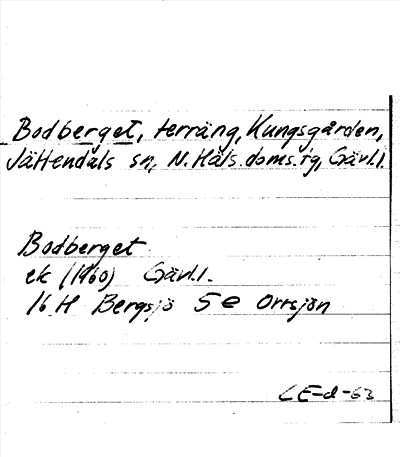 Bodberget, terräng, Kungsgården,
Jättendals sn, N. Häls. doms. tg, Gävl. l.
Bodberget
ek (1960) Gävl. l.
16 H Bergsjö 5e Orrsjön
CE-d-63